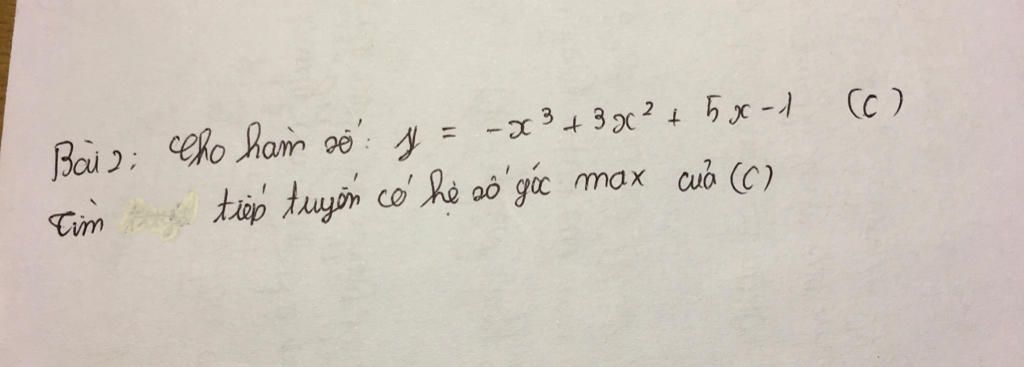 Bài 2: Cho hàm số: y = -x³ + 3x² + 5x - 1 (C)
Tìm tiếp tuyến có hệ số góc max của (C)